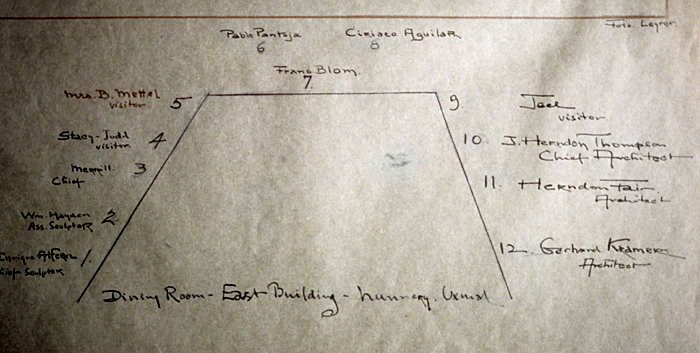 Foto. Leyrer.
Pablo Pantoja
6
Ciriaco Aguilar
8
Frans Blom.
7.
Mrs. B. Mettel
visitor.
5
Stacy-Judd
visitor
4
Merrill.
Chief
3
Wm. Hayden
Ass. Sculptor
2
Enrique Alferez
Chief Sculptor
1.
9.
visitor
10. J. Herndon Thompson
Chief Architect
11. Herndon Fair.
Architect
12. Gerhard Kramer
Architect
Dining Room - East Building - Nunnery, Uxmal